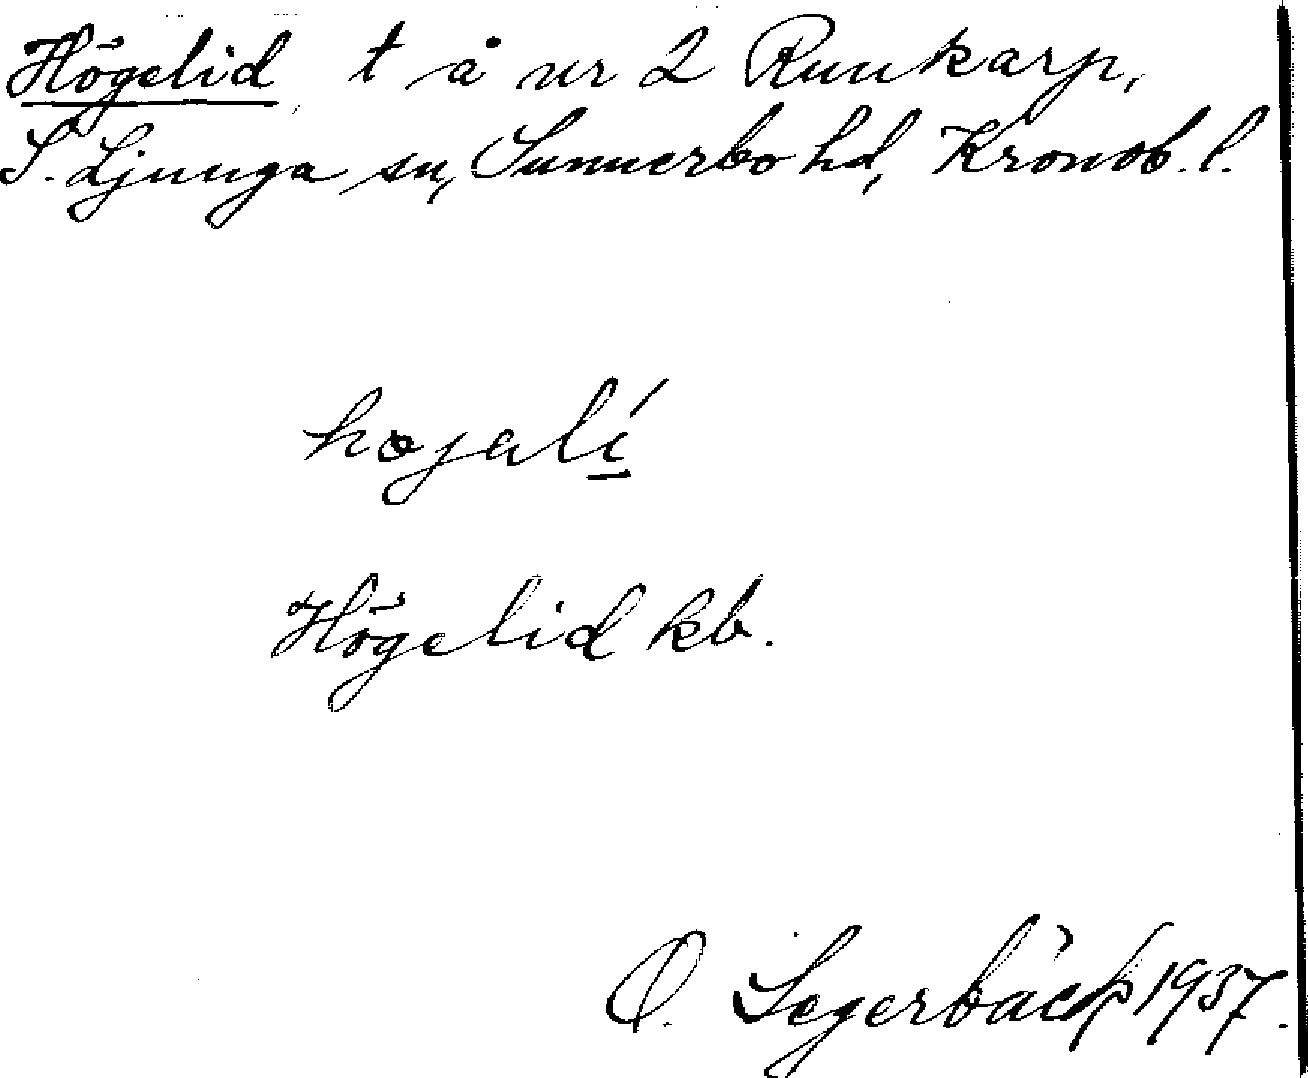 Högelid t å nr 2 Runkarp,
S. Ljunga sn, Sunnerbo hd, Kronob. l.
højalí
Högelid kb.
O. Segerbäck 1937.